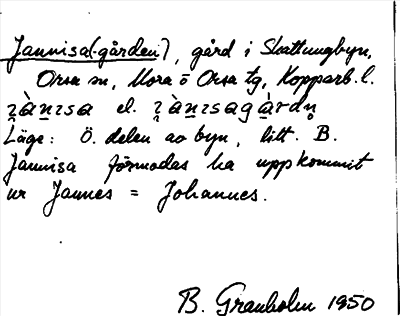 Jannisa(-gården), gård i Skattungbyn,
Orsa sn, Mora o Orsa tg, Kopparb. l.
ʒàn̲ɪsa el. ʒàn̲ɪsagàrdn̥
Läge: Ö. delen av byn, litt. B.
Jannisa förmodas ha uppkommit
ur Jannes = Johannes.
B. Granholm 1950